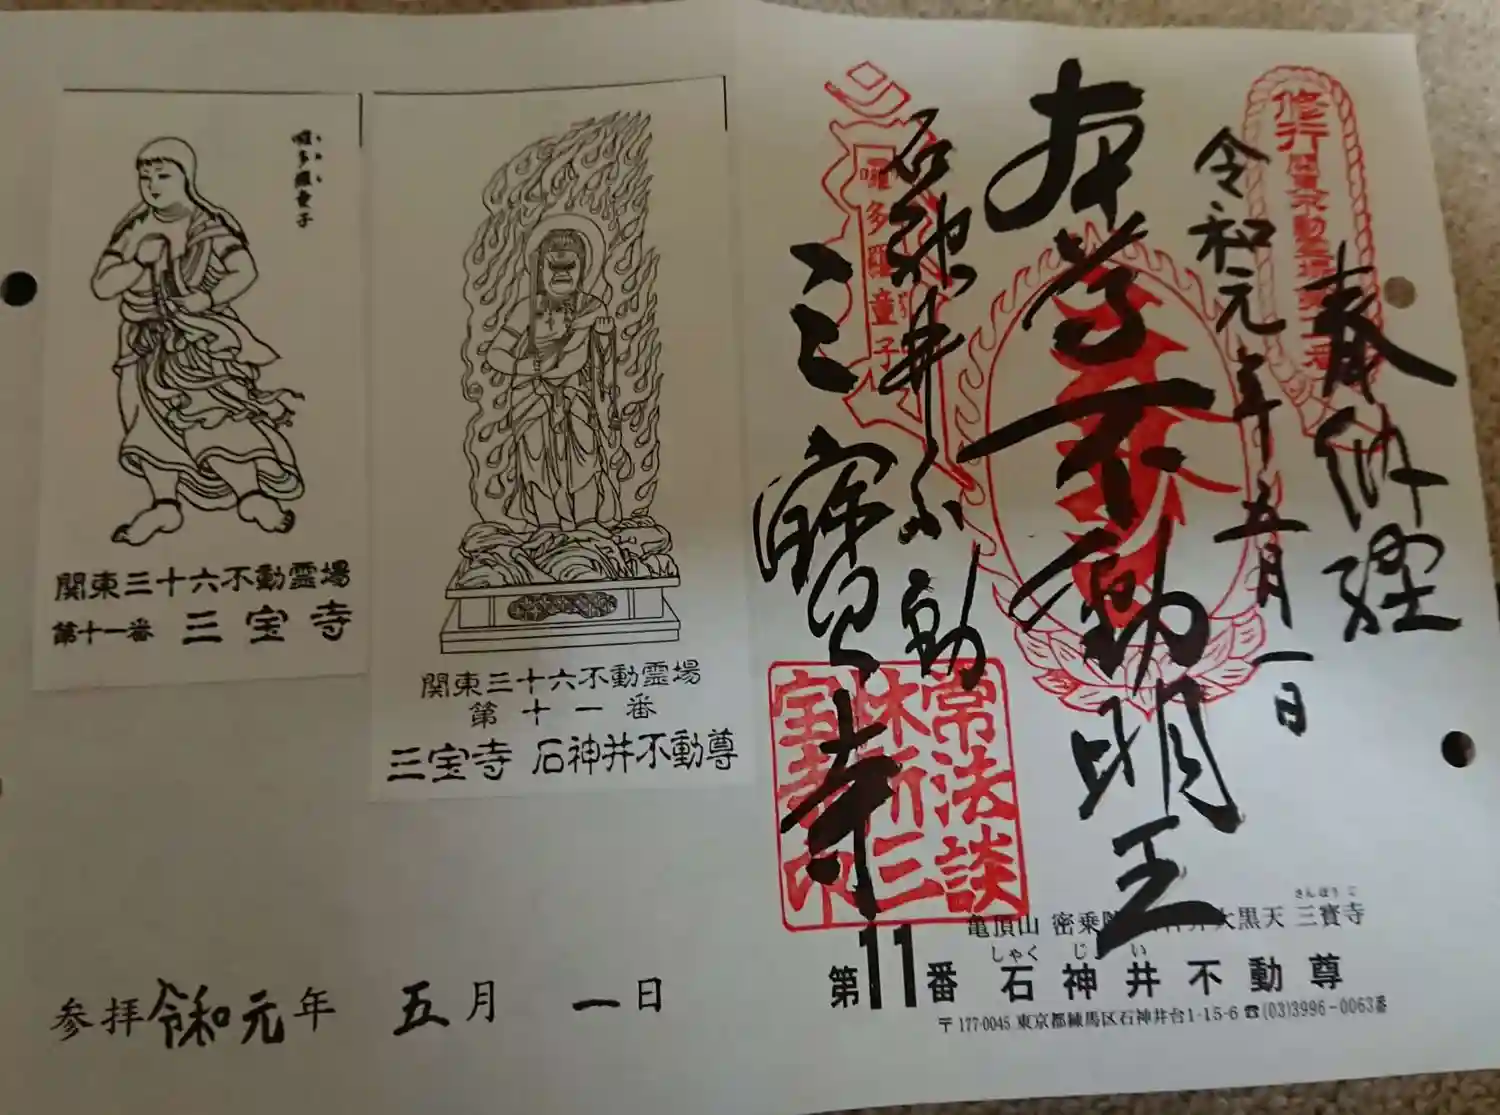 奉納経
修行関東不動霊場第十一番
令和元年五月一日
本尊不動明王
石神井不動
三寳寺
囉多羅童子
常法談
林所三
宝寺印
亀頂山 密乗院 大黒天 三寳寺
さんぼうじ
しゃくじい
第11番 石神井不動尊
〒177-0045 東京都練馬区石神井台1-15-6 ☎(03)3996-0063番
関東三十六不動霊場
第十一番
三宝寺 石神井不動尊
囉多羅童子
関東三十六不動霊場
第十一番 三宝寺
参拝令和元年 五月 一日